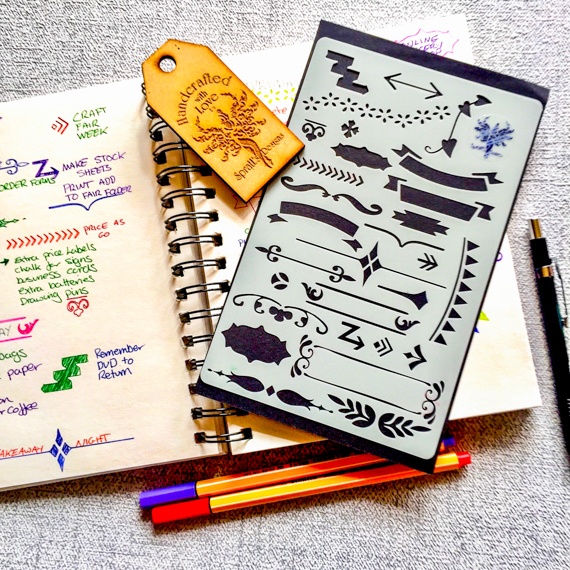 CRAFT
FAIR
WEEK
ORDER FORMS
MAKE STOCK
SHEETS
PRINT ADD
TO FAIR FOLDER
PRICE AS
GO
Extra price labels
chalk for signs
business cards
extra batteries
Drawing pins
paper
Remember
DVD to
Return
coffee
NIGHT
Handcrafted
with
Love